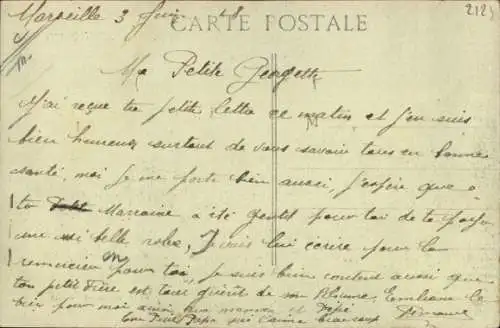 Marseille 3 Juin 18
CARTE POSTALE
2125
Ma Petite Georgette
J'ai reçue ta petite lettre ce matin et j'en suis
bien heureux surtout de vous savoir tous en bonne
santé, moi je me porte bien aussi, j'espère que
ta Marraine a été gentil pour toi de te payer
une si belle robe, je vais lui écrire pour la
remercier pour toi, je suis bien content aussi que
ton petit Frère est tout guérit de sa Rhume, Embrasse le
bien pour moi ainsi que maman et Pépé
Ton Petit Papa qui t'aime beaucoup
Fernand